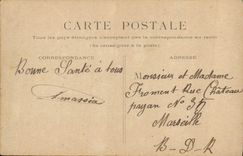 CARTE POSTALE
Tous les pays étrangers n'acceptent pas la correspondance au recto
(Se renseigner à la poste).
CORRESPONDANCE
ADRESSE
Bonne Santé à tous
Monsieur et Madame
Froment Rue Château
payan No 37
Marseille
B-D-R